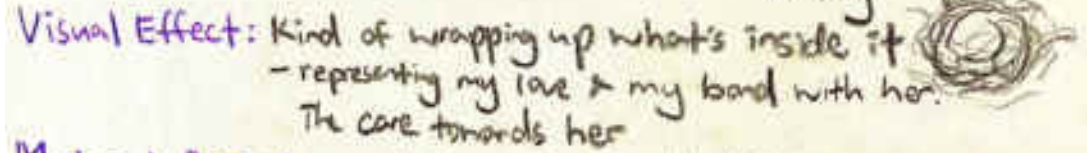 Visual Effect: Kind of wrapping up what's inside it
- representing my love & my bond with her.
The care towards her